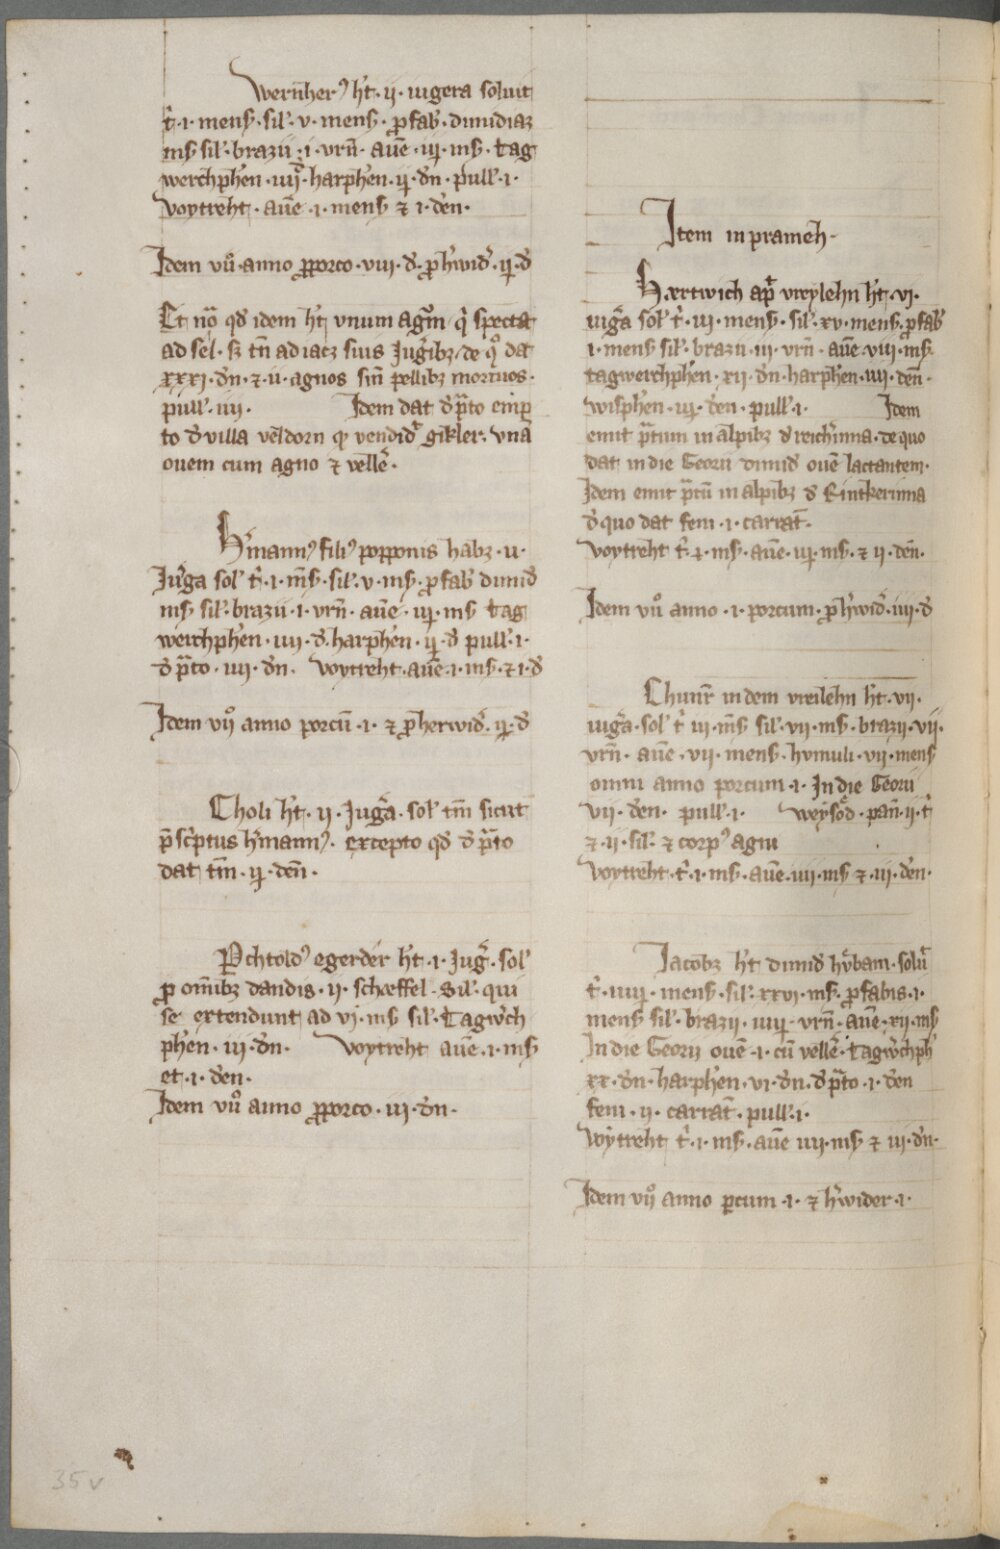 Wernherꝰ hꝫt · ij · iugera soluit
t̄ · i · mens̄ · sil̄ · v · mens̄ · p̄ fab̄ · dimidiaꝫ
ms̄ sil̄ · brazii · i · vrn̄ · auē · iij · ms̄ · tag
werchphēn · iiij · harphēn · ij · dn̄ · pull̄ · i ·
Voytreht · auē · i · mens̄ ⁊ i · dēn ·
Idem vͦ anno p̄ porco · viii · đ · p̄ hwid̄ · ij · đ
Et nō qđ idem hꝫt vnum agrū q̄ spectat
ad sel · sꝫ tn̄ adiacꝫ suis Jugibꝫ de qͦ dat
xxxi · dn̄ · ⁊ · ii · agnos sin̄ pellibꝫ mortuos ·
pull̄ · iiij · Idem dat đ p̄to emp
to đ villa veldorn qͣ vendid̄ gikler · vnā
ouem cum agno ⁊ vellē ·
Hˀmannꝰ filiꝰ popponis habꝫ · ii ·
Juḡa sol̄ t̄ · i · ms̄ · sil̄ · v · ms̄ · p̄ fab̄ dimid̄
ms̄ sil̄ · brazii · i · vrn̄ · auē · iij · ms̄ tag
werchphēn · iiij · đ · harphēn · ij · đ pull̄ · i ·
đ p̄to · iiij · dn̄ · voytreht · auē · i · ms̄ · ⁊ i · đ
Idem vͦ anno porcū · i · ⁊ p̄ herwid̄ · ij · đ
Choli hꝫt · ij · Juḡa · sol̄ tm̄ sicut
p̄scˀptus hˀmannꝰ · excepto qđ đ p̄to
dat tm̄ · ij · dēn ·
Pchtoldꝰ egerder hꝫt · i · Juḡ · sol̄
p̄ om̄ibꝫ dandis · ij · schæffel · sil̄ · qui
se extendunt ad vj · ms̄ sil̄ · Tagwˀch
phēn · iij · dn̄ · voytreht auē · i · ms̄
et · i · dēn ·
Idem vͦ anno p̄ porco · iii · dn̄ ·
Item in prameh ·
Hærtwich ap̄ vreylehn hꝫt · vi ·
iuḡa sol̄ t̄ · iij · mens̄ · sil̄ · xv · mens̄ · p̄ fab̄
i · mens̄ sil̄ · brazii · iii · vrn̄ · auē · viii · ms̄ ·
tagwerchphēn · xii · dn̄ · harphēn · iiij · dēn ·
wisphēn · iij · dēn · pull̄ · i · Idem
emit p̄tum in alpibꝫ đ reichˀinna · de quo
dat in die Georii dimid̄ ouē lactantem ·
Idem emit p̄tū in alpibꝫ đ Rintkerinna
đ quo dat feni · i · carrat̄ ·
Voytreht t̄ · i · ms̄ · auē · iij · ms̄ · ⁊ ij · dēn ·
Idem vͦ anno · i · porcum · p̄ hˀwid̄ · iiij · đ
Chunr̄ in dem vreilehn hꝫt · vii ·
iuḡa · sol̄ t̄ iii · ms̄ sil̄ · vii · ms̄ · brazii · vii ·
vrn̄ · auē · vii · mens̄ · humuli · vii · mens̄
omni anno porcum · i · In die Georii
vii · dēn · pull̄ · i · weysod̄ · pan̄ · ij · t̄
⁊ · ij · sil̄ · ⁊ corpꝰ agni
Voytreht · t̄ · i · ms̄ · auē · iiij · ms̄ ⁊ · iij · dēn ·
Jacobꝫ hꝫt dimid̄ hv̊bam · solū
t̄ · iiij · mens̄ · sil̄ · xxvi · ms̄ · p̄ fabis · i ·
mens̄ sil̄ · brazij · iiij · vrn̄ · auē · xij · ms̄
In die Georii ouē · i · cū vellē · tagwˀchph̄
xx · dn̄ · harphēn · vi · dn̄ · đ p̄to · i · dēn
feni · ij · carrat̄ · pull̄ · i ·
Voytreht t̄ · i · ms̄ · auē iiij · ms̄ ⁊ iii · dn̄ ·
Idem vͦ anno p̄cum · i · ⁊ hˀwider · i ·
35v